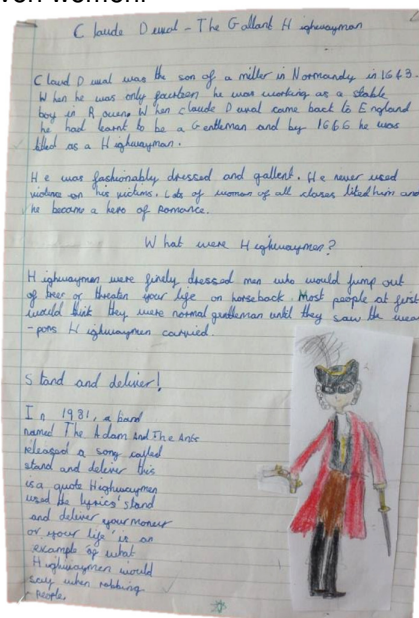 ven women.
Claude Duval - The Gallant Highwayman
Claud Duval was the son of a miller in Normandy in 1643.
When he was only fourteen he was working as a stable
boy in Rouen. When Claude Duval came back to England
he had learnt to be a Gentleman and by 1666 he was
titled as a Highwayman.
He was fashionably dressed and gallent. He never used
violence on his victims. Lots of woman of all classes liked him and
he became a hero of Romance.
What were Highwaymen?
Highwaymen were finely dressed men who would jump out
of trees or threaten your life on horseback. Most people at first
would think they were normal gentleman until they saw the wea
-pons Highwaymen carried.
Stand and deliver!
In 1981, a band
named The Adam And The Ants
released a song called
stand and deliver this
is a quote Highwaymen
used the lyrics 'stand
and deliver your money
or your life' is an
example of what
Highwaymen would
say when robbing
people.